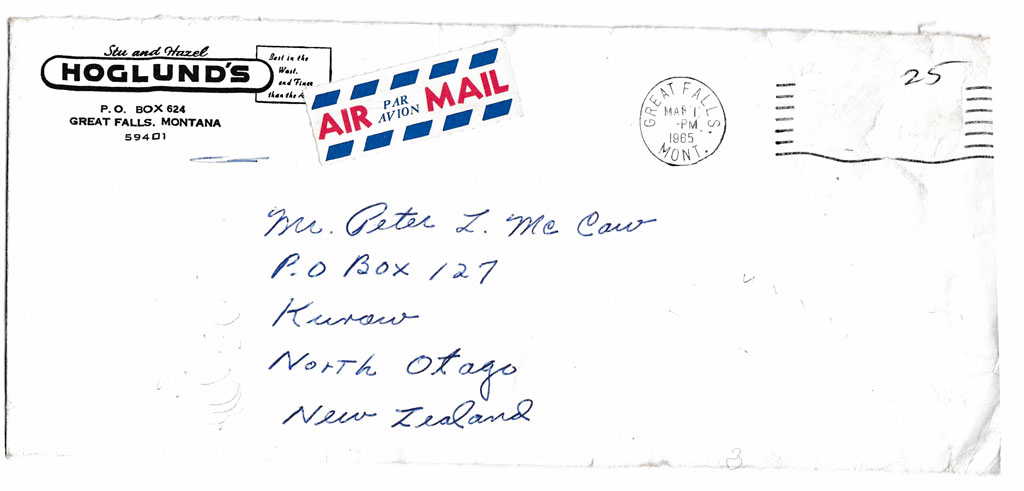 Stu and Hazel
HOGLUND'S
P. O. BOX 624
GREAT FALLS, MONTANA
59401
Best in the
West,
and Finer
than the
AIR PAR AVION MAIL
GREAT FALLS.
MAR 1
-PM
1965
MONT.
25
Mr. Peter L. Mc Caw
P.O Box 127
Kurow
North Otago
New Zealand
3